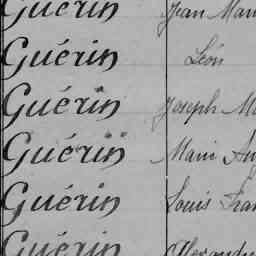 Guérin Jean
Guérin Léon
Guérin Joseph
Guérin Marie
Guérin Louis
Guérin